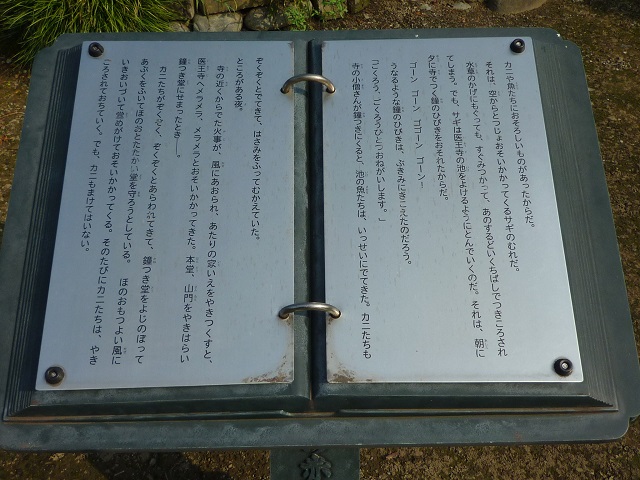 カニや魚たちにおそろしいものがあったからだ。
それは、空からとつじょおそいかかってくるサギのむれだ。
水草のかげにもぐっても、すぐみつかって、あのするどいくちばしでつきころされ
てしまう。でも、サギは医王寺の池をよけるようにとんでいくのだ。それは、朝に
夕に寺でつく鐘のひびきをおそれたからだ。
ゴーン ゴーン ゴゴーン ゴーン―
うなるような鐘のひびきは、ぶきみにきこえたのだろう。
「ごくろう、ごくろう、ひとつおねがいします。」
寺の小僧さんが鐘つきにくると、池の魚たちは、いっせいにでてきた。カニたちも
ぞくぞくとでてきて、はさみをふってむかえていた。
ところがある夜。
寺の近くからでた火事が、風にあおられ、あたりの家いえをやきつくすと、
医王寺へメラメラ、メラメラとおそいかかってきた。本堂、山門をやきはらい
鐘つき堂にせまったとき―。
カニたちがぞくぞく、ぞくぞくとあらわれてきて、鐘つき堂をよじのぼって
あぶくをふいてほのおとたたかい堂を守ろうとしている。 ほのおもつよい風に
いきおいづいて堂めがけておそいかかってくる。そのたびにカニたちは、やき
ころされておちていく。でも、カニもまけてはいない。